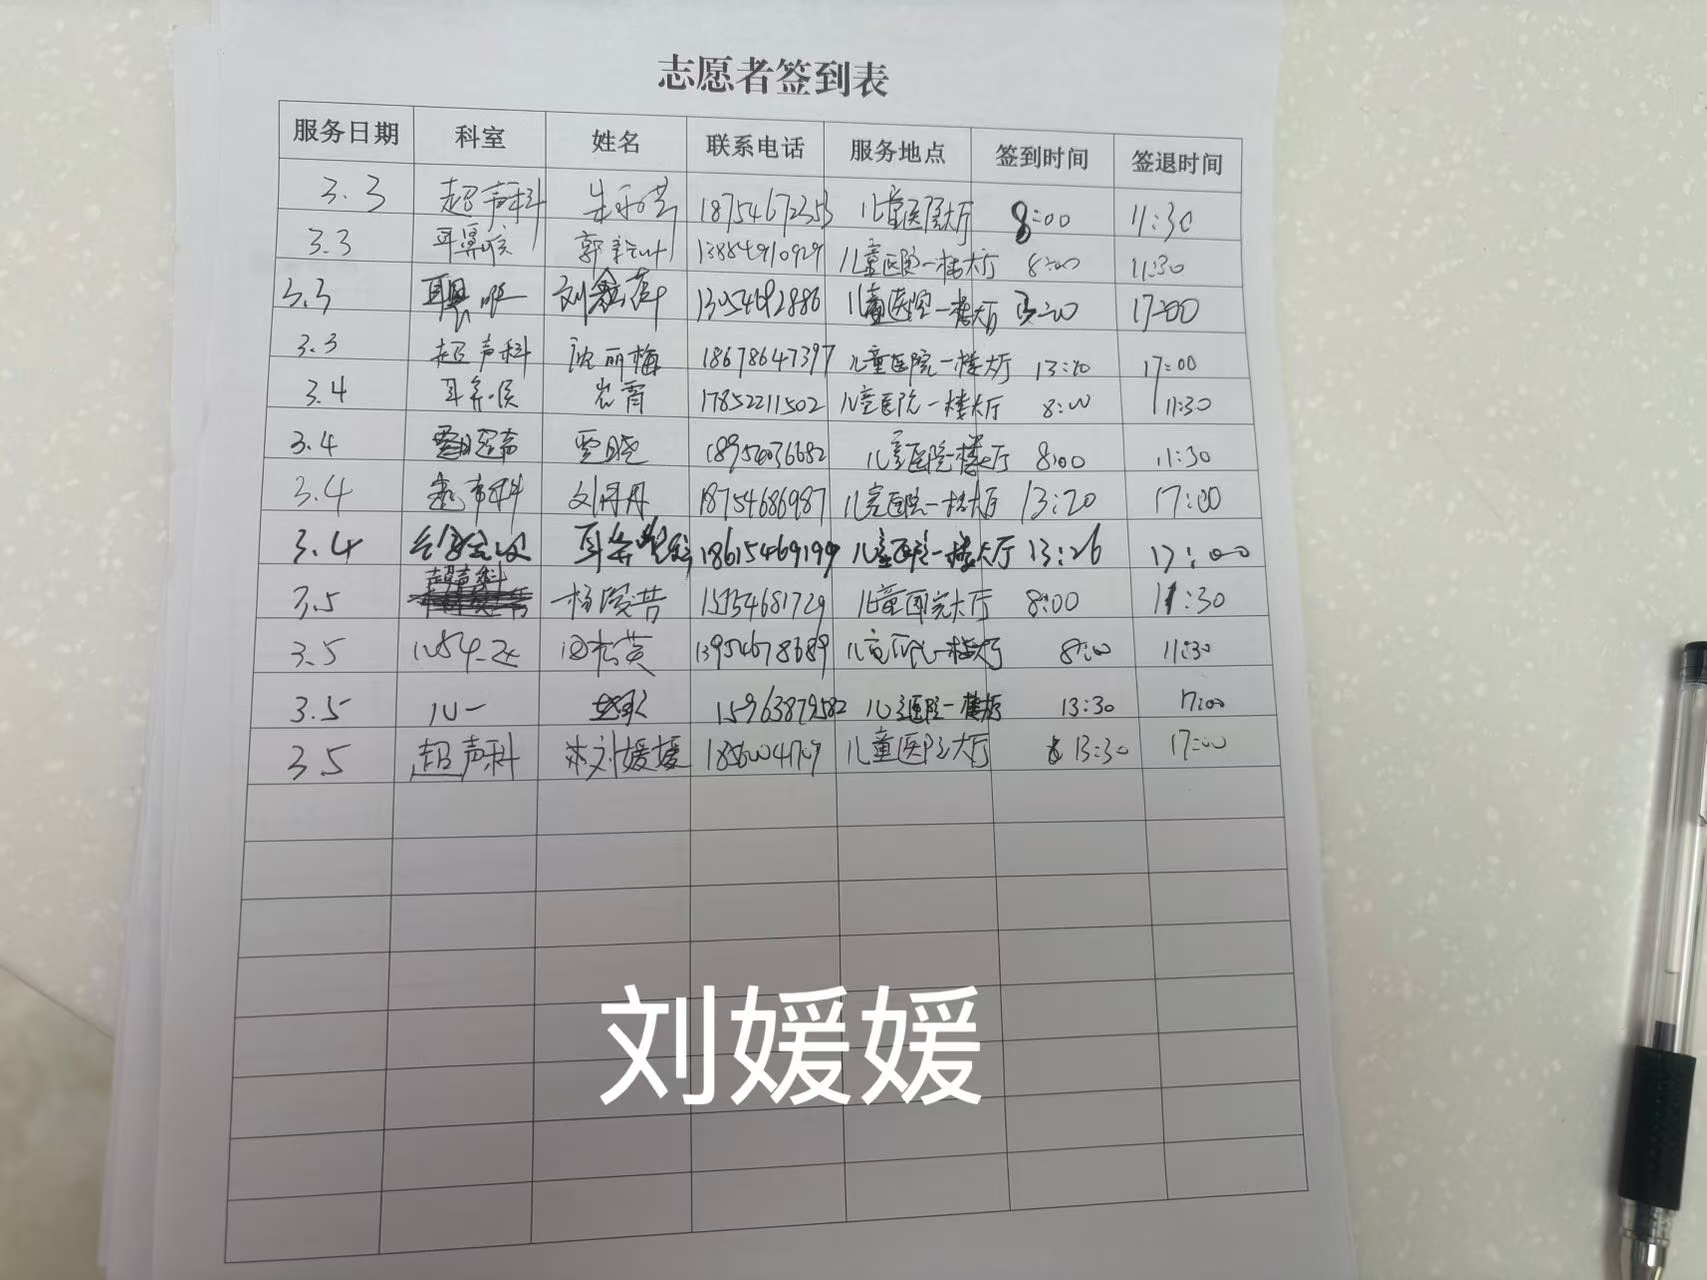 志愿者签到表
服务日期 科室 姓名 联系电话 服务地点 签到时间 签退时间
3.3 超声科 18754672353 儿童医院大厅 8:00 11:30
3.3 耳鼻喉 郭 13884910929 儿童医院一楼大厅 8:00 11:30
3.3 刘鑫 儿童医院一楼大厅 17:00
3.3 超声科 沈丽梅 18678647397 儿童医院一楼大厅 13:20 17:00
3.4 耳鼻喉 岩霄 17852211502 儿童医院一楼大厅 8:00 11:30
3.4 超声 贾晓 18954036682 儿童医院一楼大厅 8:00 11:30
3.4 超声科 刘丹丹 18754686987 儿童医院一楼大厅 13:20 17:00
3.4 18615469199 儿童医院一楼大厅 13:26 17:00
3.5 超声科 杨 15154681729 儿童医院大厅 8:00 11:30
3.5 英 13954678689 儿童医院一楼大厅 8:00 11:30
3.5 儿一 15963879582 儿童医院一楼大厅 13:30 17:00
3.5 超声科 刘媛媛 儿童医院大厅 13:30 17:00
刘媛媛